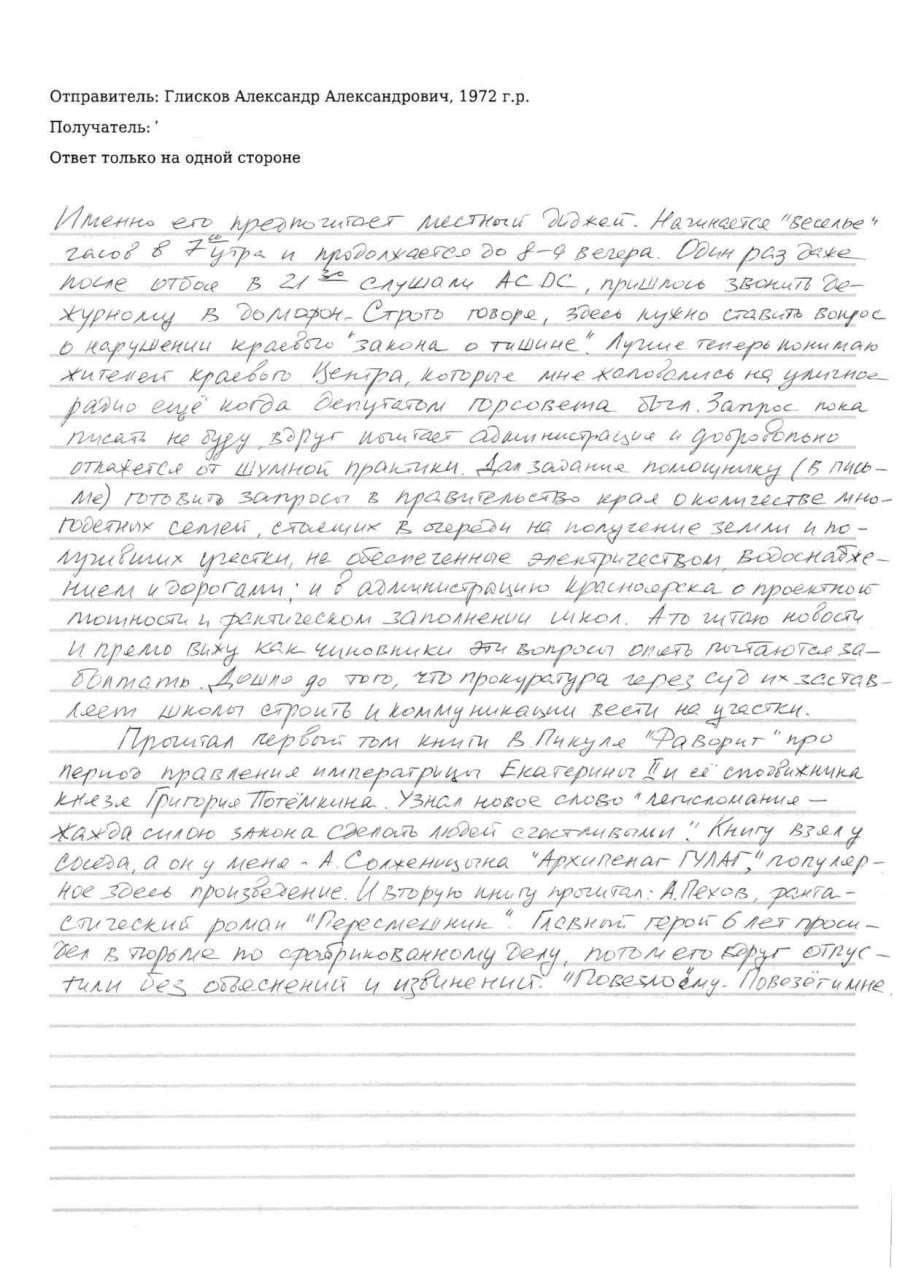 Отправитель: Глисков Александр Александрович, 1972 г.р.
Получатель: '
Ответ только на одной стороне
Именно его предпочитает местный диджей. Начинается "веселье"
часов в 7 00 утра и продолжается до 8-9 вечера. Один раз даже
после отбоя в 21 30 слушали AC DC, пришлось звонить де-
журному в домофон. Строго говоря, здесь нужно ставить вопрос
о нарушении краевого "закона о тишине". Лучше теперь понимаю
жителей краевого Центра, которые мне жаловались на уличное
радио ещё когда депутатом горсовета был. Запрос пока
писать не буду, вдруг почитает администрация и добровольно
откажется от шумной практики. Дал задание помощнику (в пись-
ме) готовить запросы в правительство края о количестве мно-
годетных семей, стоящих в очереди на получение земли и по-
лучивших участки, не обеспеченные электричеством, водоснабже-
нием и дорогами; и в администрацию Красноярска о проектной
мощности и фактическом заполнении школ. А то читаю новости
и прямо вижу как чиновники эти вопросы опять пытаются за-
болтать. Дошло до того, что прокуратура через суд их застав-
ляет школы строить и коммуникации вести на участки.
Прочитал первый том книги В. Пикуля "Фаворит" про
период правления императрицы Екатерины II и её сподвижника
князя Григория Потёмкина. Узнал новое слово "легисломания -
жажда силою закона сделать людей счастливыми". Книгу взял у
соседа, а он у меня - А. Солженицына "Архипелаг ГУЛАГ", популяр-
ное здесь произведение. И вторую книгу прочитал: А. Пехов, фанта-
стический роман "Пересмешник". Главный герой 6 лет проси-
дел в тюрьме по сфабрикованному делу, потом его вдруг отпус-
тили без объяснений и извинений. "Повезло ему. Повезёт и мне